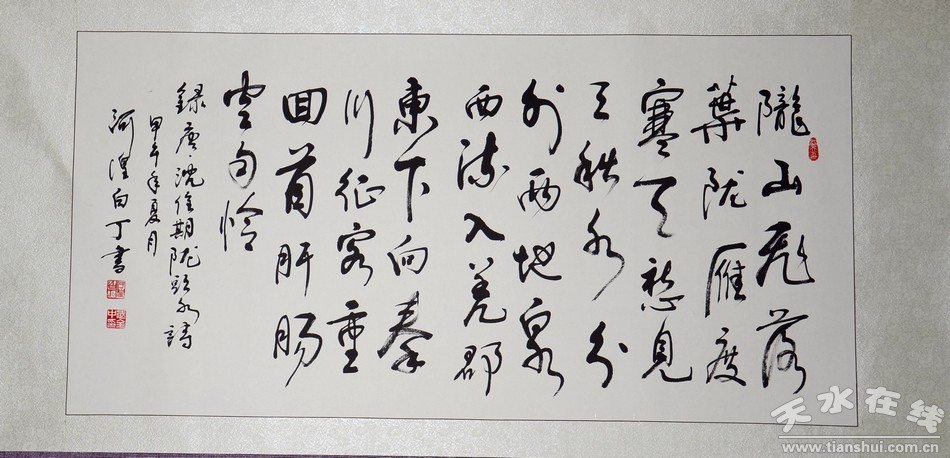 隴山飛落
葉陇雁度
寒天愁見
三秋水分
为兩地泉
西流入羌郡
東下向秦
川征客重
囬首肝肠
空自怜
録唐沈佺期陇头水詩
甲午年夏月
河湟白丁書
天水在线
www.tianshui.com.cn